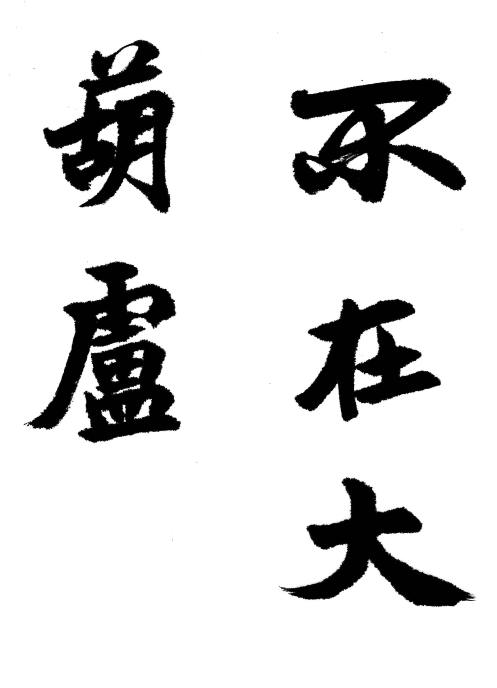 不在大
葫盧